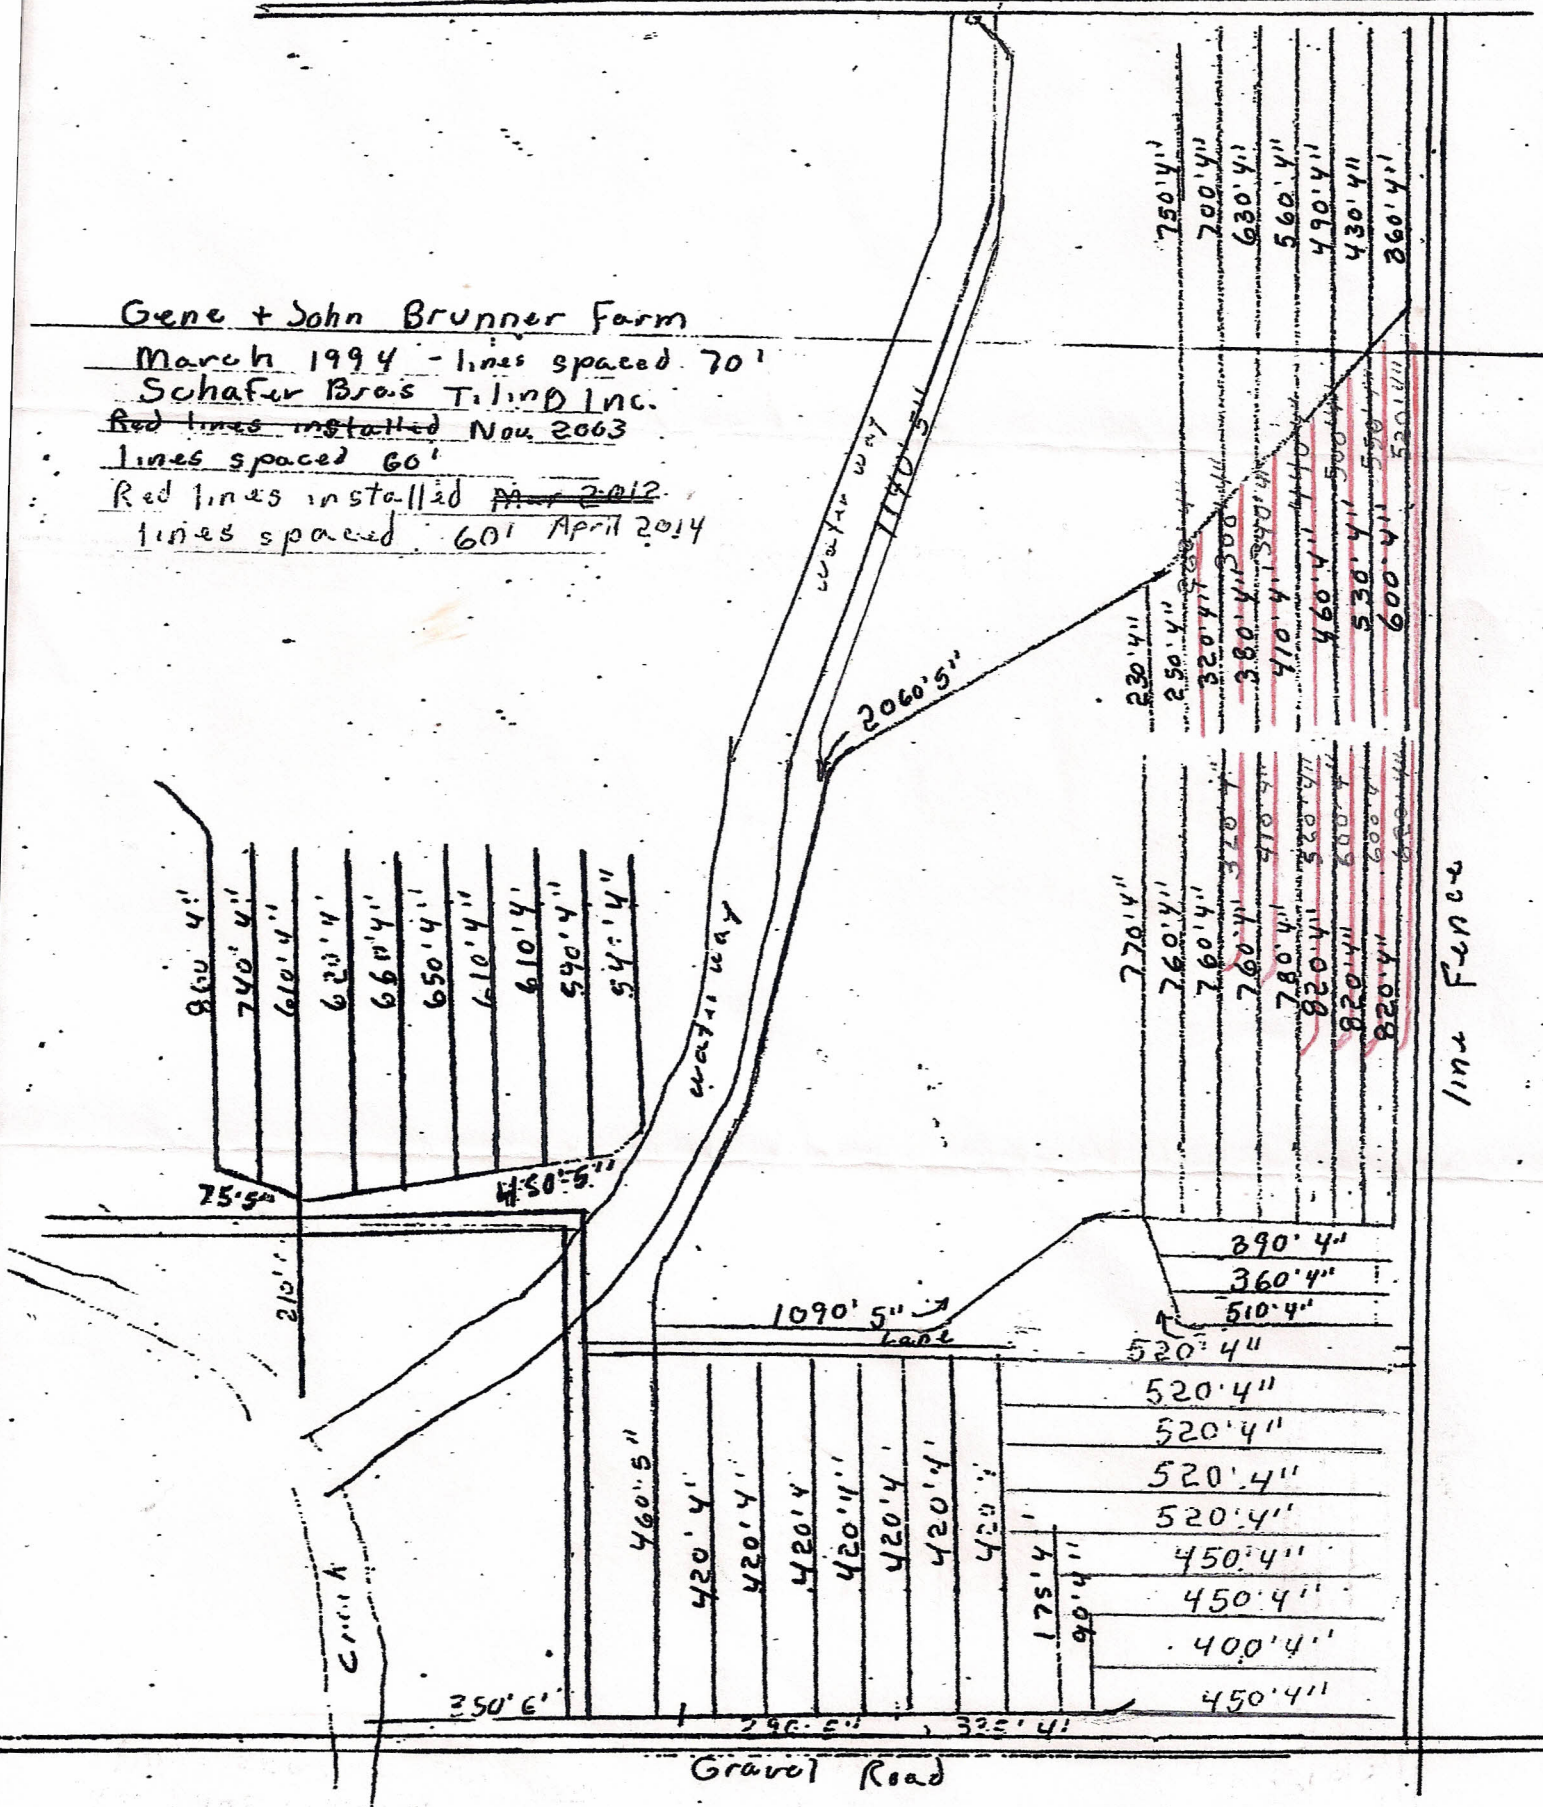 Gene + John Brunner Farm
March 1994 - lines spaced 70'
Schafer Bros Tiling Inc.
Red lines installed Nov. 2003
lines spaced 60'
Red lines installed Mar 2012
lines spaced 60' April 2014
750'4"
700'4"
630'4"
560'4"
490'4"
430'4"
360'4"
water way
1190'5"
2060'5"
230'4"
250'4"
320'4"
380'4"
410'4'
460'4"
530'4"
600'4"
300'4"
340'4"
500'4"
550'4"
520'4"
320'4"
410'4"
520'4"
600'4"
600'4"
620'4"
770'4"
760'4"
760'4"
760'4'
780'4"
820'4"
820'4"
820'4"
line Fence
740'4"
610'4"
620'4'
660'4'
650'4"
610'4"
610'4'
590'4"
water way
75'5"
210'
390'4"
360'4"
510'4"
1090'5"
Lane
520'4"
520'4"
520'4"
520'4"
520'4'
450'4"
450'4"
400'4"
450'4"
460'5"
420'4'
420'4'
420'4'
420'4"
420'4'
420'4'
420'
175'4'
90'4"
Creek
350'6'
Gravel Road